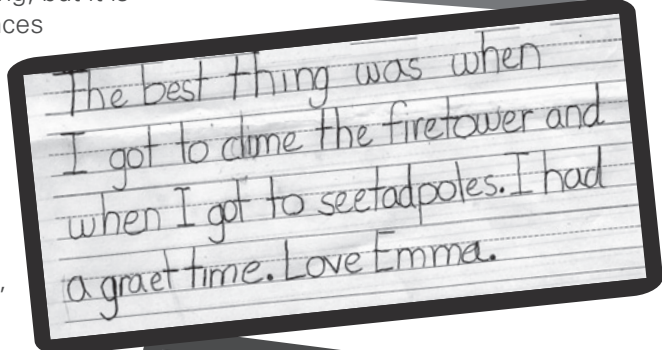 ng, but it is
nces
The best thing was when
I got to clime the firetower and
when I got to seetadpoles. I had
a graet time. Love Emma.
,